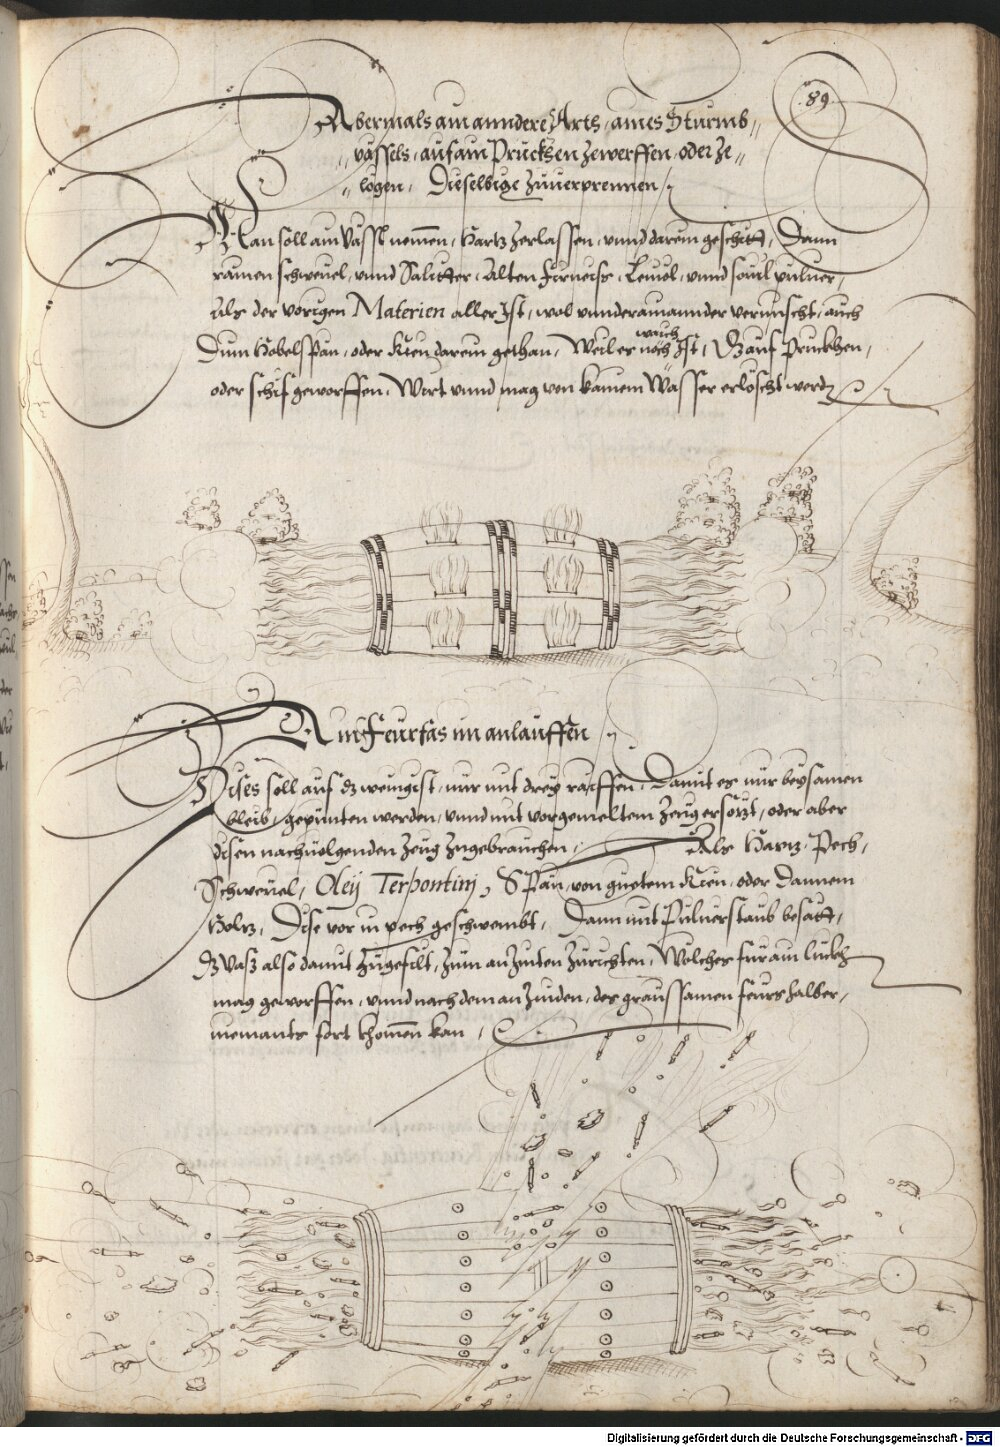 .89.
Abermals ain anndere Arth, aines Sturmb=
vässels, auf ain Prucksen zewerffen, oder ze=
lögen, Dieselbige zuuerprennen,
Man soll ain Vässl nemen, Hartz zerlassen, vnnd darein geschitt, Dann
ramen schweuel, vnnd Salitter, Alten firneiss, Leinöl, vnnd faul puluer,
Als der vorigen Materien aller Ist, wol vnnderainannder vermischt, auch
Dinn Hobelspän, oder Kien darein gethan, Weil er noch waich Ist, Dz auf Pruckhen,
oder schif geworffen, Wirt vnnd mag von kainem Wasser erlöscht werdn
Ain Feurfas im anlauffen
Dises soll auf dz wenigist, nur mit drey raiffen, Damit es nur beysamen
bleib, gepunten werden, vnnd mit vorgemeltem Zeug ersözt, oder aber
disen nachuolgenden Zeug zugebrauchen, Als Hartz, Pech,
Schweuel, Oleÿ Terpontinj, Spän, von guetem Kien, oder Dannem
Holtz, Dise vor in pech geschwembt, Dann mit Puluerstaub besätt,
Dz Vasz also damit zugefilt, zum anzinten zurichten, Wölches für ain lückh
mag geworffen, vnnd nach dem anzinden, des graussamen feurs halber,
niemants fort khomen kan,
Digitalisierung gefördert durch die Deutsche Forschungsgemeinschaft - DFG